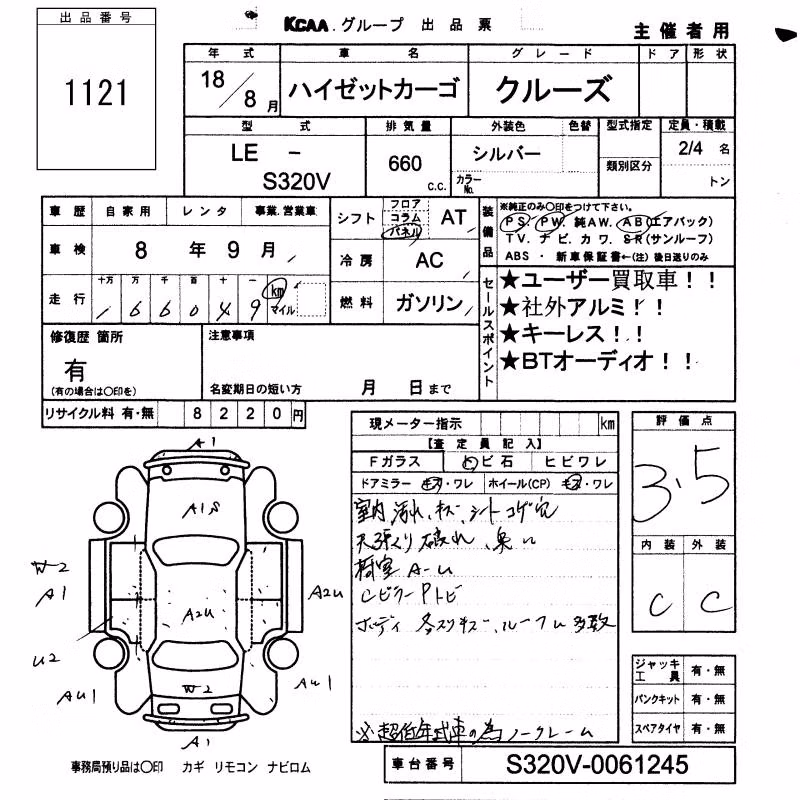 出品番号
1121
KCAA.グループ 出品票
主催者用
年式 車名 グレード ドア 形状
18/8月 ハイゼットカーゴ クルーズ
型式 排気量 外装色 色替 型式指定 定員・積載
LE - S320V 660 c.c. シルバー カラーNo. 類別区分 2/4 名 トン
車歴 自家用 レンタ 事業.営業車
車検 8年9月
走行 十万 万 千 百 十 一
166049 km マイル
シフト フロア コラム パネル AT
冷房 AC
燃料 ガソリン
装備品
※純正のみ○印をつけて下さい。
PS. PW. 純AW. AB(エアバック)
TV. ナビ. カワ. SR(サンルーフ)
ABS ・ 新車保証書←(注) 後日送りのみ
セールスポイント
★ユーザー買取車!!
★社外アルミ!!
★キーレス!!
★BTオーディオ!!
修復歴 箇所
有
(有の場合は○印を)
注意事項
名変期日の短い方 月 日まで
リサイクル料 有・無 8220円
現メーター指示 km
【査定員記入】
Fガラス トビ石 ヒビワレ
ドアミラー キズ・ワレ ホイール(CP) キズ・ワレ
室内 汚れ、キズ、シートコゲ穴
天張り破れ、
A-U
CピラーPトビ
ボディ 各スリキズ、ルーフム多数
※超低年式車の為ノークレーム
評価点
3.5
内装 外装
C C
A1
A1S
W2
A1
A2U
A2U
U2
AU1
W2
AU1
A1
ジャッキ工具 有・無
パンクキット 有・無
スペアタイヤ 有・無
事務局預り品は○印 カギ リモコン ナビロム
車台番号 S320V-0061245